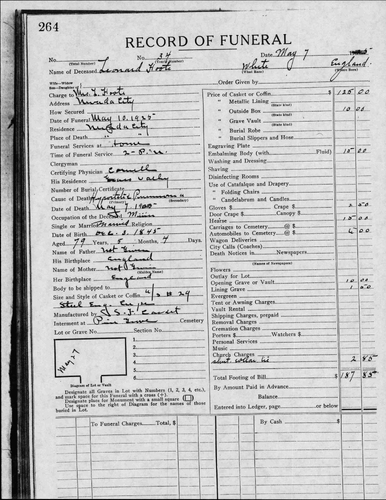 264
RECORD OF FUNERAL
No. No. 24 Date May 7
(Total Number) (Yearly Number)
Name of Deceased Leonard White England
(What Race) (Where Born)
Wife—Widow
Son—Daughter Order Given by
Charge to
Address Nevada City
How Secured
Date of Funeral May 10, 1925
Residence Nevada City
Place of Death " "
Funeral Services at home
Time of Funeral Service 2 - P.M.
Clergyman
Certifying Physician
His Residence Grass Valley
Number of Burial Certificate
Cause of Death Hypostatic Pneumonia
Date of Death May 7
Occupation of the Deceased Miner
Single or Married Religion
Date of Birth Dec 3 1845
Aged 79 Years, 5 Months, 4 Days.
Name of Father Not Given
His Birthplace England
Name of Mother Not Given
Her Birthplace England
Body to be shipped to
Size and Style of Casket or Coffin
Manufactured by
Interment at Pine Grove Cemetery
Lot or Grave No. Section No.
May 7
1
2
3
4
5
Diagram of Lot or Vault
Designate all Graves in Lot with Numbers (1, 2, 3, 4, etc.),
and mark place for this Funeral with a cross (+).
Designate place for Monument with a small square
Use space to right of Diagram for the names of those
buried in Lot.
Price of Casket or Coffin $ 125 00
" Metallic Lining
(State Kind)
" Outside Box 10 00
" Grave Vault
(State Kind)
" Burial Robe
(State Kind)
" Burial Slippers and Hose
Engraving Plate
Embalming Body (with Fluid) 15 00
Washing and Dressing
Shaving
Disinfecting Rooms
Use of Catafalque and Drapery
" Folding Chairs
" Candelabrum and Candles
Gloves $ Crape $ 2 50
Door Crape $ Canopy $
Hearse 15 00
Carriages to Cemetery @ $
Automobiles to Cemetery @ $
Wagon Deliveries
City Calls (Coaches)
Death Notices in Newspapers
(Names of Newspapers)
Flowers
Outlay for Lot
Opening Grave or Vault 10 00
Lining Grave
Evergreen
Tent or Awning Charges
Vault Rental
Shipping Charges, prepaid
Removal Charges
Cremation Charges
Porters $ Watchers $
Personal Services
Music
Church Charges
2 85
Total Footing of Bill $ 187 85
By Amount Paid in Advance
Balance
Entered into Ledger, page or below
To Funeral Charges, Total $ By Cash $